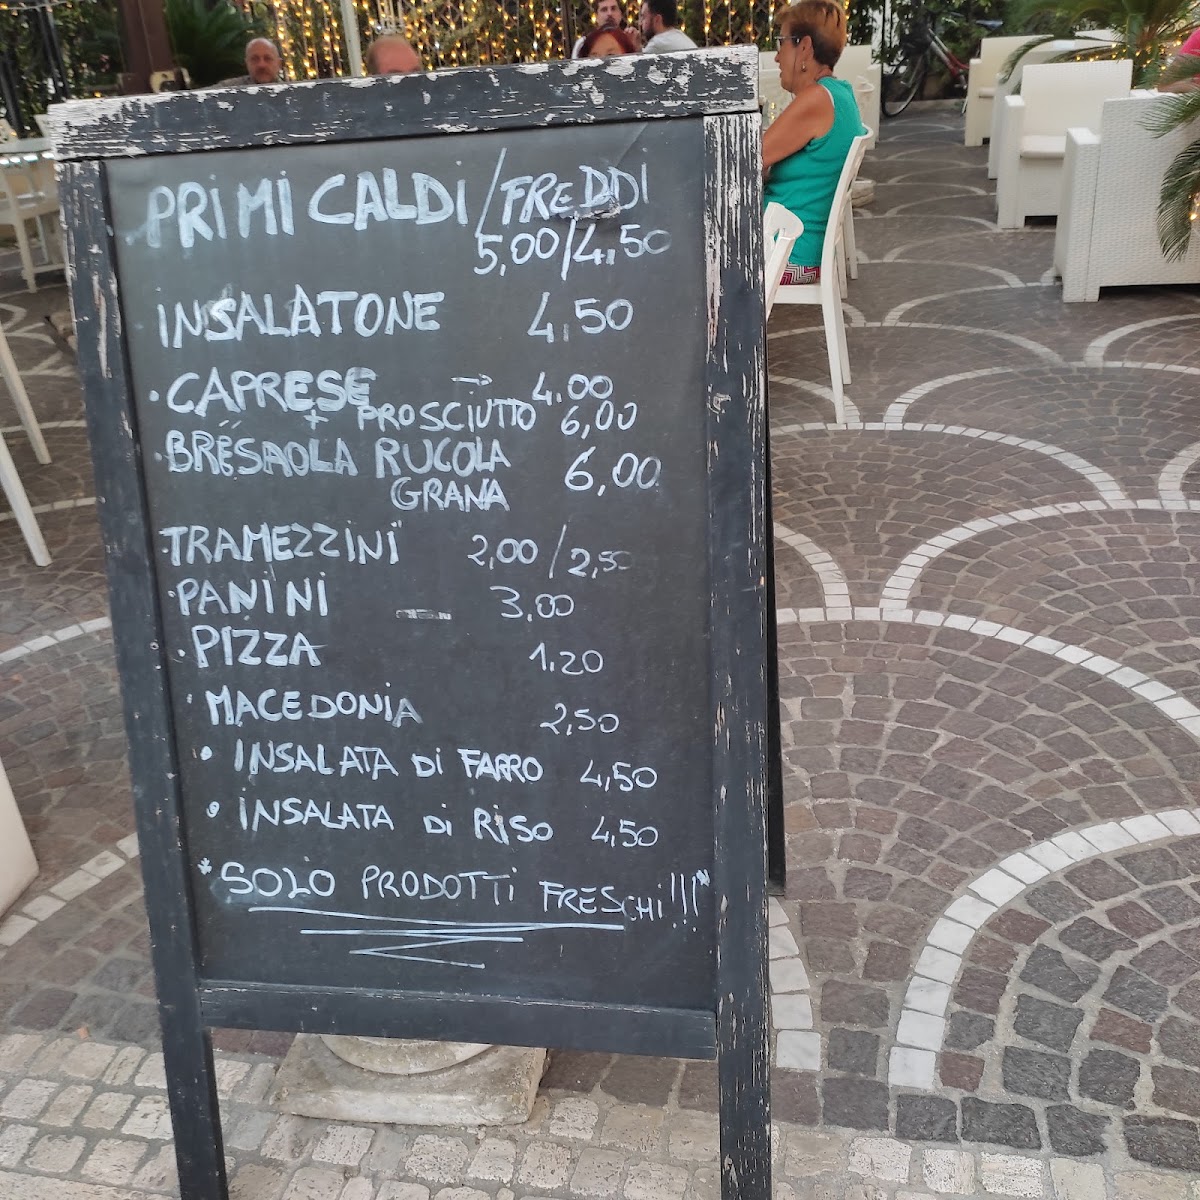 PRIMI CALDI/FREDDI
5,00/4,50
INSALATONE 4,50
• CAPRESE → 4.00
+ PROSCIUTTO 6,00
• BRESAOLA RUCOLA 6,00
GRANA
• TRAMEZZINI 2,00/2,50
• PANINI 3,00
• PIZZA 1.20
• MACEDONIA 2,50
• INSALATA Di FARRO 4,50
• INSALATA Di RISO 4,50
*SOLO PRODOTTI FRESCHI!!!*